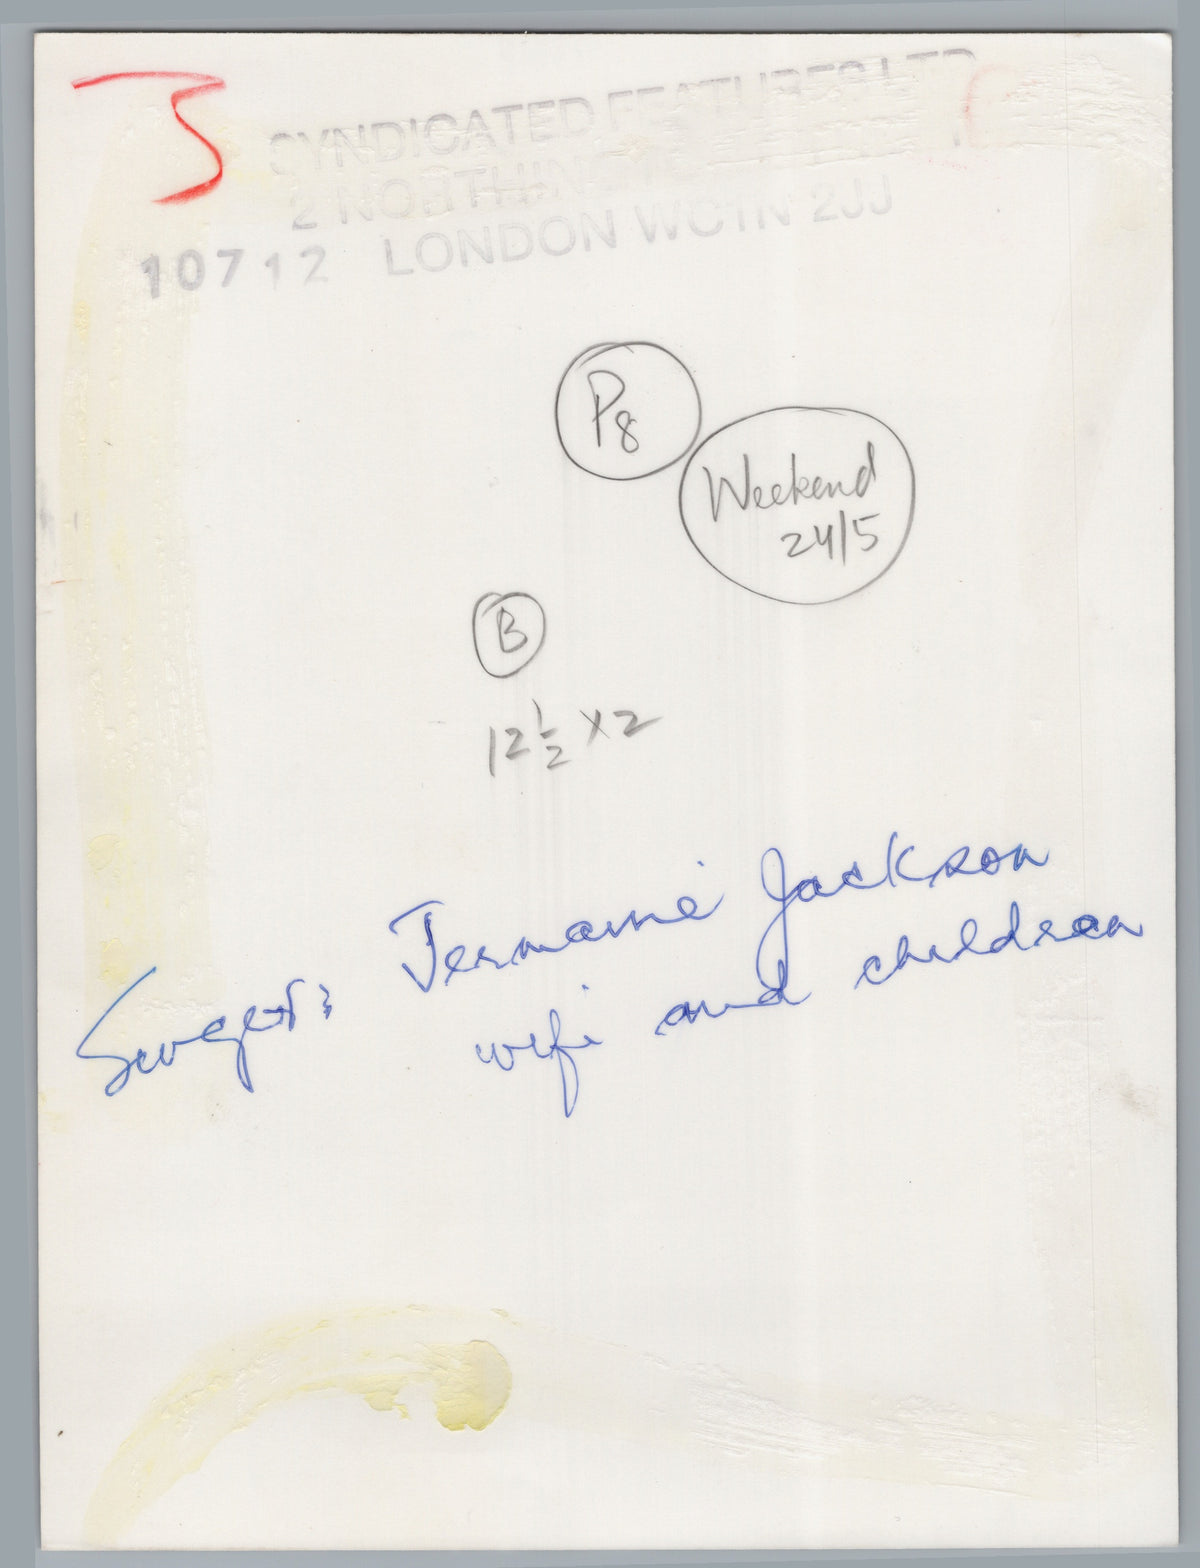 SYNDICATED FEATURES LTD
2 NORTHING
LONDON WC1N 2JJ
10712
P8
Weekend
24/5
B
12 1/2 x 2
Jermaine Jackson
wife and children